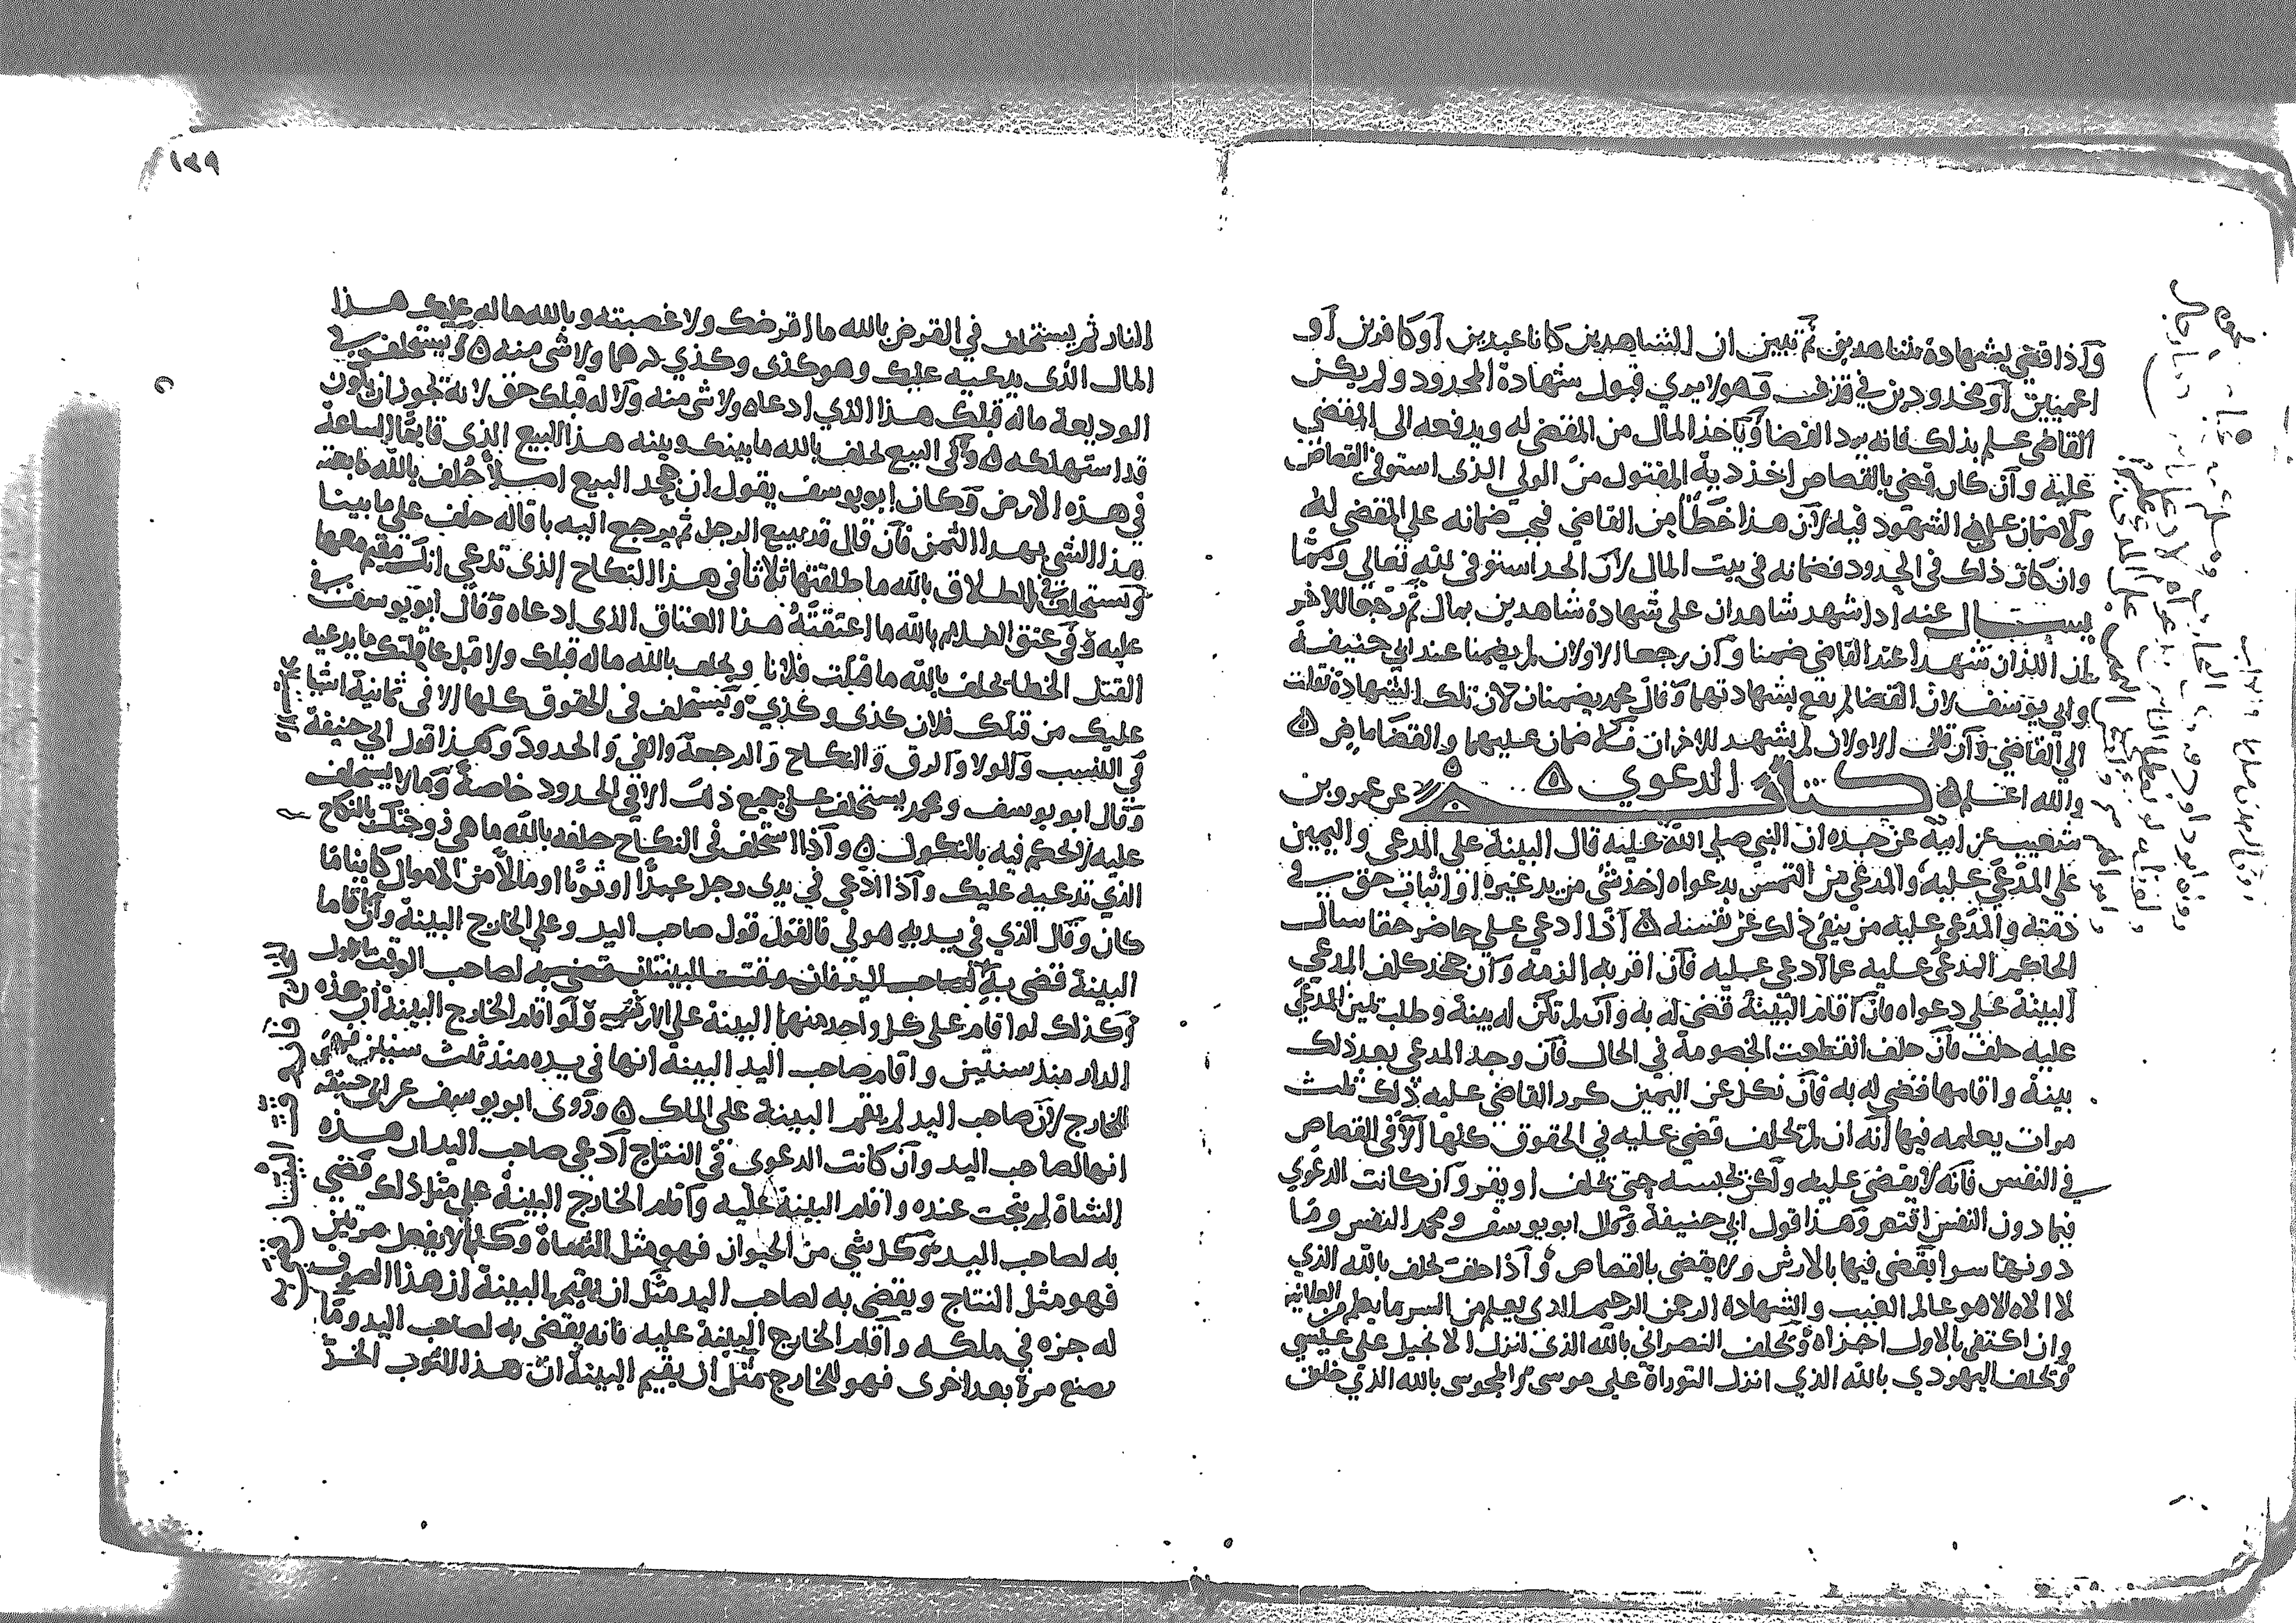 واذا قضي بشهادة شاهدين ثم تبين ان الشاهدين كانا عبدين او كافرين او
اعميين او محدودين في قذف وهو لا يري قبول شهادة المحدود ولم يكن
القاضي علم بذلك فانه يرد القضا وياخذ المال من المقضي له ويدفعه الى المقضي
عليه وان كان قضي بالقصاص اخذ دية المقتول من الولي الذى استوفي القصاص
ولا ضمان على الشهود فيه لان هذا خطأ من القاضي فيجب ضمانه على المقضي له
وان كان ذلك في الحدود فضمانه في بيت المال لان الحد استوفي لله تعالي ومما
يسال عنه اذا شهد شاهدان على شهادة شاهدين بمال ثم رجعا الاخر
ان اللذان شهدا عند القاضي ضمنا وان رجعا الاولان لم يضمنا عند ابي حنيفة
وابي يوسف لان القضا لم يقع بشهادتهما وقال محمد يضمنان لان تلك الشهادة نقلت
الي القاضي وان قال الاولان لم يشهد الاخران فلا ضمان عليهما والقضا ماض ه
والله اعلم ه كتاب الدعوي ه عن عمرو بن
شعيب عن ابيه عن جده ان النبي صلى الله عليه قال البينة على المدعي واليمين
على المدعي عليه والمدعي من التمس بدعواه اخذ شي من يد غيره او اثبات حق في
ذمته والمدعي عليه من ينفي ذلك عن نفسه ه اذا ادعي على حاضر حقا سال
الحاكم المدعي عليه عما ادعي عليه فان اقر به الزمه وان جحد كلف المدعي
البينة على دعواه فان اقام البينة قضي له به وان لم تكن له بينة وطلب يمين المدعي
عليه حلف فان حلف انقطعت الخصومة في الحال فان وجد المدعي بعد ذلك
بينة واقامها قضي له به فان نكل عن اليمين كرر القاضي عليه ذلك ثلث
مرات يعلمه فيها انه ان لم تحلف قضي عليه في الحقوق كلها الا في القصاص
في النفس فانه لا يقضي عليه ولكن تحبسه حتي يحلف او يقر وان كانت الدعوي
فيما دون النفس اقتص وهذا قول ابي حنيفة وقال ابو يوسف ومحمد النفس وما
دونها سوا يقضي فيها بالارش ولا يقضي بالقصاص واذا حلف تحلف بالله الذي
لا الاه الا هو عالم الغيب والشهادة الرحمن الرحيم الذي يعلم من السر ما يعلم من العلانية
وان اكتفي بالاول اجزاه وتحلف النصراني بالله الذي انزل الانجيل على عيسي
وتحلف اليهودي بالله الذي انزل التوراة على موسى والمجوسى بالله الذي خلق
١٤٩
النار ثم يستحلف في القرض بالله ما اقرضك ولا غصبته وبالله ما له عليك هذا
المال الذى يدعيه عليك وهو كذى وكذي درهما ولا شي منه ه ويستحلف في
الوديعة ماله قبلك هذا الذي ادعاه ولا شي منه ولا له قبلك حق لانه تجوز ان يكون
قد استهلكه ه وفي البيع تحلف بالله ما بينك وبينه هذا البيع الذى قايما الساعة
في هذه الارض وكان ابو يوسف يقول ان جحد البيع اصلا حلف بالله ما بعته
هذا الشي بهذا الثمن فان قال قد يبيع الرجل ثم يرجع اليه باقاله حلف على ما بينا
ويستحلف في الطلاق بالله ما طلقتها ثلاثا في هذا النكاح الذى تدعي انك مقيم معها
عليه وفي عتق الغلام بالله ما اعتقته هذا العتاق الذى ادعاه وقال ابو يوسف في
القتل الخطا تحلف بالله ما قتلت فلانا ويحلف بالله ماله قبلك ولا قبل عاقلتك ما يدعيه
عليك من قتلك فلان كذى وكذي وتستحلف في الحقوق كلها الا في ثمانية اشيا
في النسب والولا والرق والنكاح والرجعة والفي والحدود وهذا قول ابي حنيفة
وقال ابو يوسف ومحمد يستحلف على جميع ذلك الا في الحدود خاصة وما لا يستحلف
عليه لا تحكم فيه بالنكول ه واذا استحلف في النكاح حلفه بالله ما هي زوجتك بالنكاح
الذي تدعيه عليك واذا ادعي في يدى رجل عبدا او ثوبا او مالا من الاموال كاينا ما
كان وقال الذي في يديه هو لي فالقول قول صاحب اليد وعلى الخارج البينة وان اقاما
البينة قضي به لصاحب اليد فان وقتت البينتان قضي به لصاحب الوقت الاول
وكذلك لو اقام على كل واحد منهما البينة على الارض ولو اقام الخارج البينة ان هذه
الدار منذ سنتين واقام صاحب اليد البينه انها في يده منذ ثلث سنين فهي
للخارج لان صاحب اليد لم يقم البينة على الملك ه وروى ابو يوسف عن ابي حنيفة
انها لصاحب اليد وان كانت الدعوى في النتاج ادعي صاحب اليد ان هذه
الشاة نتجت عنده واقام البينة عليه واقام الخارج البينة على مثل ذلك قضي
به لصاحب اليد وكل شي من الحيوان فهو مثل الشاة وكلما لا يفعل مرتين
فهو مثل النتاج ويقضي به لصاحب اليد مثل ان يقيم البينة ان هذا الصوف
له جزه في ملكه واقام الخارج البينة عليه فانه يقضي به لصاحب اليد وما
يصنع مرة بعد اخرى فهو للخارج مثل ان يقيم البينة ان هذا الثوب الخز